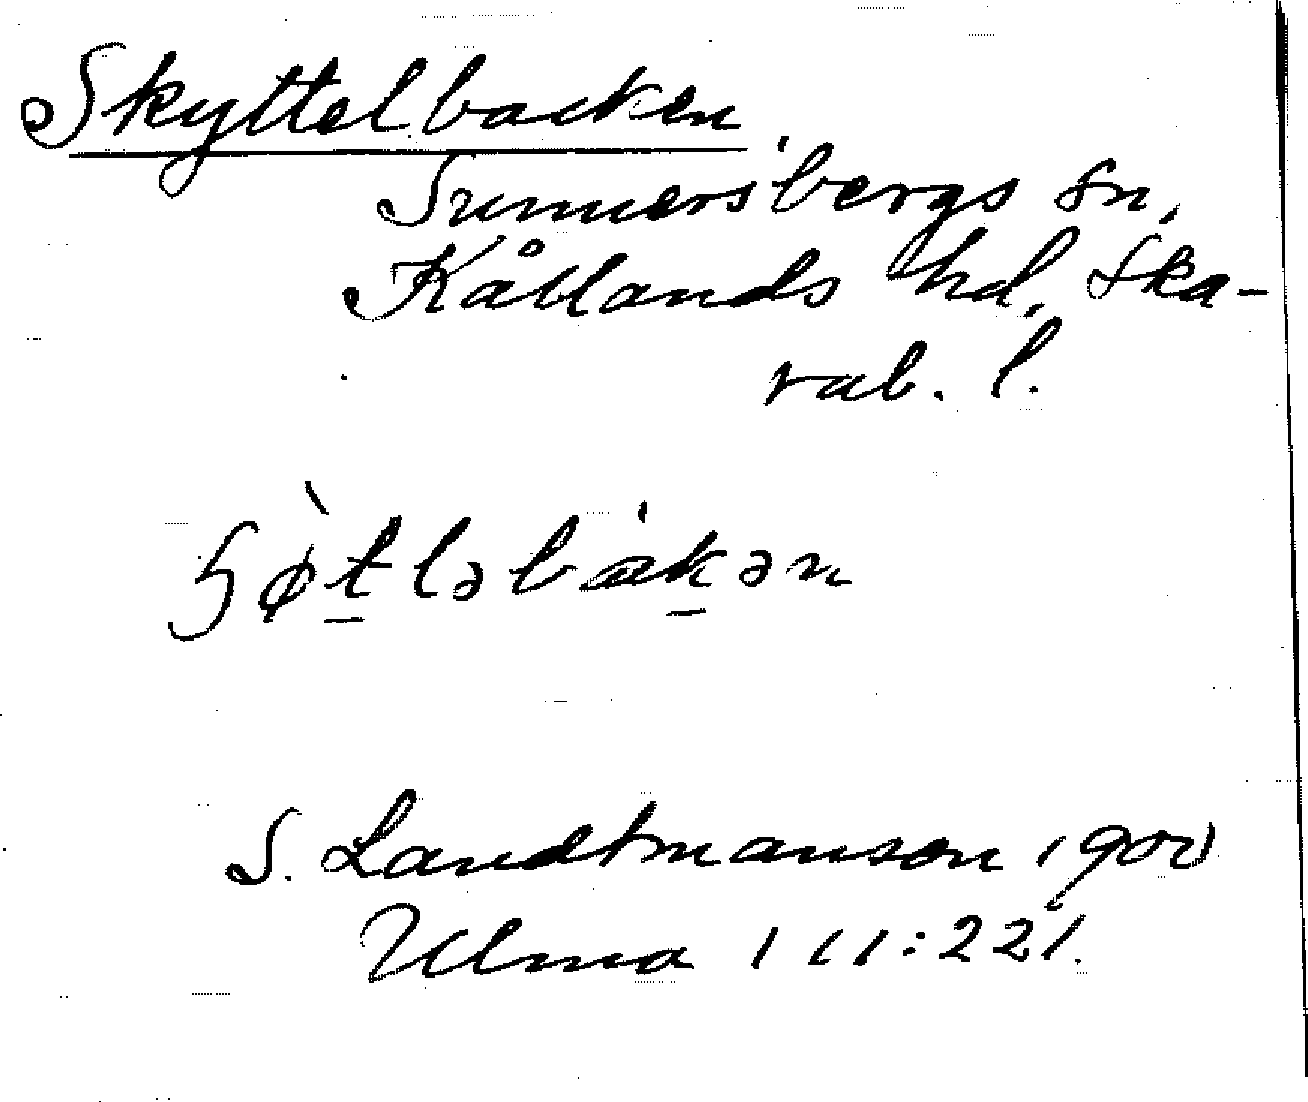 Skyttelbacken
Sunnersbergs sn,
Kållands hd, Ska-
rab. l.
ꞩø̀t̲ləbák̲ən
S. Landtmanson 1900
Ulma 111:221.